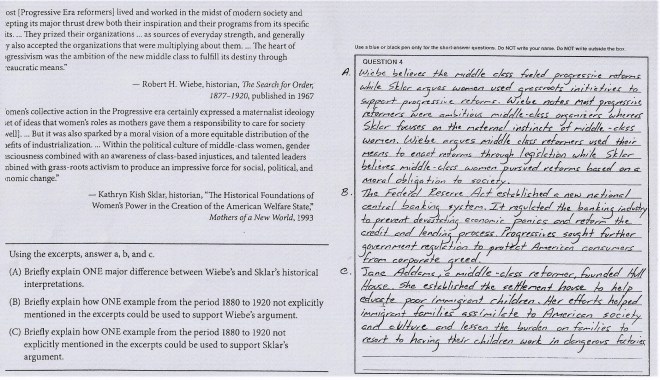 ost [Progressive Era reformers] lived and worked in the midst of modern society and
epting its major thrust drew both their inspiration and their programs from its specific
its. ... They prized their organizations ... as sources of everyday strength, and generally
y also accepted the organizations that were multiplying about them. ... The heart of
gressivism was the ambition of the new middle class to fulfill its destiny through
eaucratic means."
— Robert H. Wiebe, historian, The Search for Order,
1877–1920, published in 1967
omen's collective action in the Progressive era certainly expressed a maternalist ideology
et of ideas that women's roles as mothers gave them a responsibility to care for society
well]. ... But it was also sparked by a moral vision of a more equitable distribution of the
efits of industrialization. ... Within the political culture of middle-class women, gender
sciousness combined with an awareness of class-based injustices, and talented leaders
nbined with grass-roots activism to produce an impressive force for social, political, and
nomic change."
— Kathryn Kish Sklar, historian, "The Historical Foundations of
Women's Power in the Creation of the American Welfare State,"
Mothers of a New World, 1993
Using the excerpts, answer a, b, and c.
(A) Briefly explain ONE major difference between Wiebe's and Sklar's historical
interpretations.
(B) Briefly explain how ONE example from the period 1880 to 1920 not explicitly
mentioned in the excerpts could be used to support Wiebe's argument.
(C) Briefly explain how ONE example from the period 1880 to 1920 not
explicitly mentioned in the excerpts could be used to support Sklar's
argument.
Use a blue or black pen only for the short-answer questions. Do NOT write your name. Do NOT write outside the box.
QUESTION 4
A. Wiebe believes the middle class fueled progressive reforms
while Sklar argues women used grassroots initiatives to
support progressive reforms. Wiebe notes most progressive
reformers were ambitious middle-class organizers whereas
Sklar focuses on the maternal instincts of middle-class
women. Wiebe argues middle class reformers used their
means to enact reforms through legislation while Sklar
believes middle-class women pursued reforms based on a
moral obligation to society.
B. The Federal Reserve Act established a new national
central banking system. It regulated the banking industry
to prevent devastating economic panics and reform the
credit and lending process. Progressives sought further
government regulation to protect American consumers
from corporate greed.
C. Jane Addams, a middle-class reformer, founded Hull
House. She established the settlement house to help
educate poor immigrant children. Her efforts helped
immigrant families assimilate to American society
and culture and lessen the burden on families to
resort to having their children work in dangerous factories